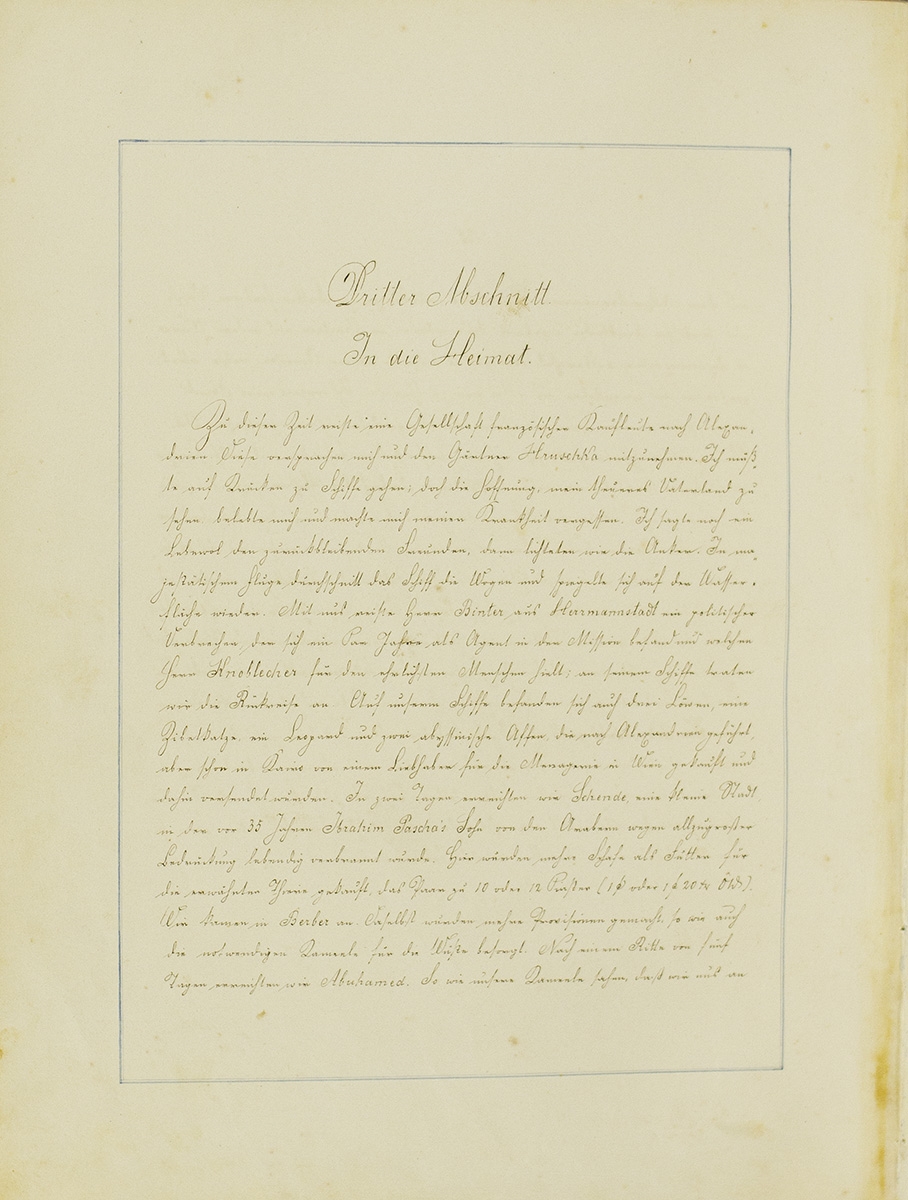 Dritter Abschnitt.
In die Heimat.
Zu dieser Zeit reiste eine Gesellschaft französischer Kaufleute nach Alexan-
drien. Diese versprachen mich und den Gärtner Hruschka mitzunehmen. Ich muß-
te auf Krücken zu Schiffe gehen; doch die Hoffnung, mein theueres Vaterland zu
sehen, belebte mich und machte mich meinen Krankheit vergessen. Ich sagte noch ein
Lebewol den zurückbleibenden Freunden, dann lichteten wir die Anker. In ma-
jestätischem Fluge durchschnitt das Schiff die Wogen und spiegelte sich auf der Wasser-
fläche wieder. Mit uns reiste Herr Binter aus Herrmannstadt ein politischer
Verbrecher, der sich ein Par Jahre als Agent in der Mission befand und welchen
Herr Knoblecher für den ehrlichsten Menschen hielt; an seinem Schiffe traten
wir die Rückreise an. Auf unserm Schiffe befanden sich auch drei Löwen, eine
Zibetkatze, ein Leopard und zwei abyssinische Affen, die nach Alexandrien geführt,
aber schon in Kairo von einem Liebhaber für die Menagerie in Wien gekauft und
dahin versendet wurden. In zwei Tagen erreichten wir Schende, eine kleine Stadt,
in der vor 35 Jahren Ibrahim Pascha's Sohn von den Arabern wegen allzugroßer
Bedrückung lebendig verbrannt wurde. Hier wurden mehre Schafe als Futter für
die erwähnten Thiere gekauft, das Paar zu 10 oder 12 Piaster (1 f oder 1 f 20 kr ÖW).
Wir kamen in Berber an. Daselbst wurden mehre Provisionen gemacht, so wie auch
die notwendigen Kameele für die Wüste besorgt. Nach einem Ritte von fünf
Tagen erreichten wir Abuhamed. So wie unsere Kameele sahen, daß wir uns an